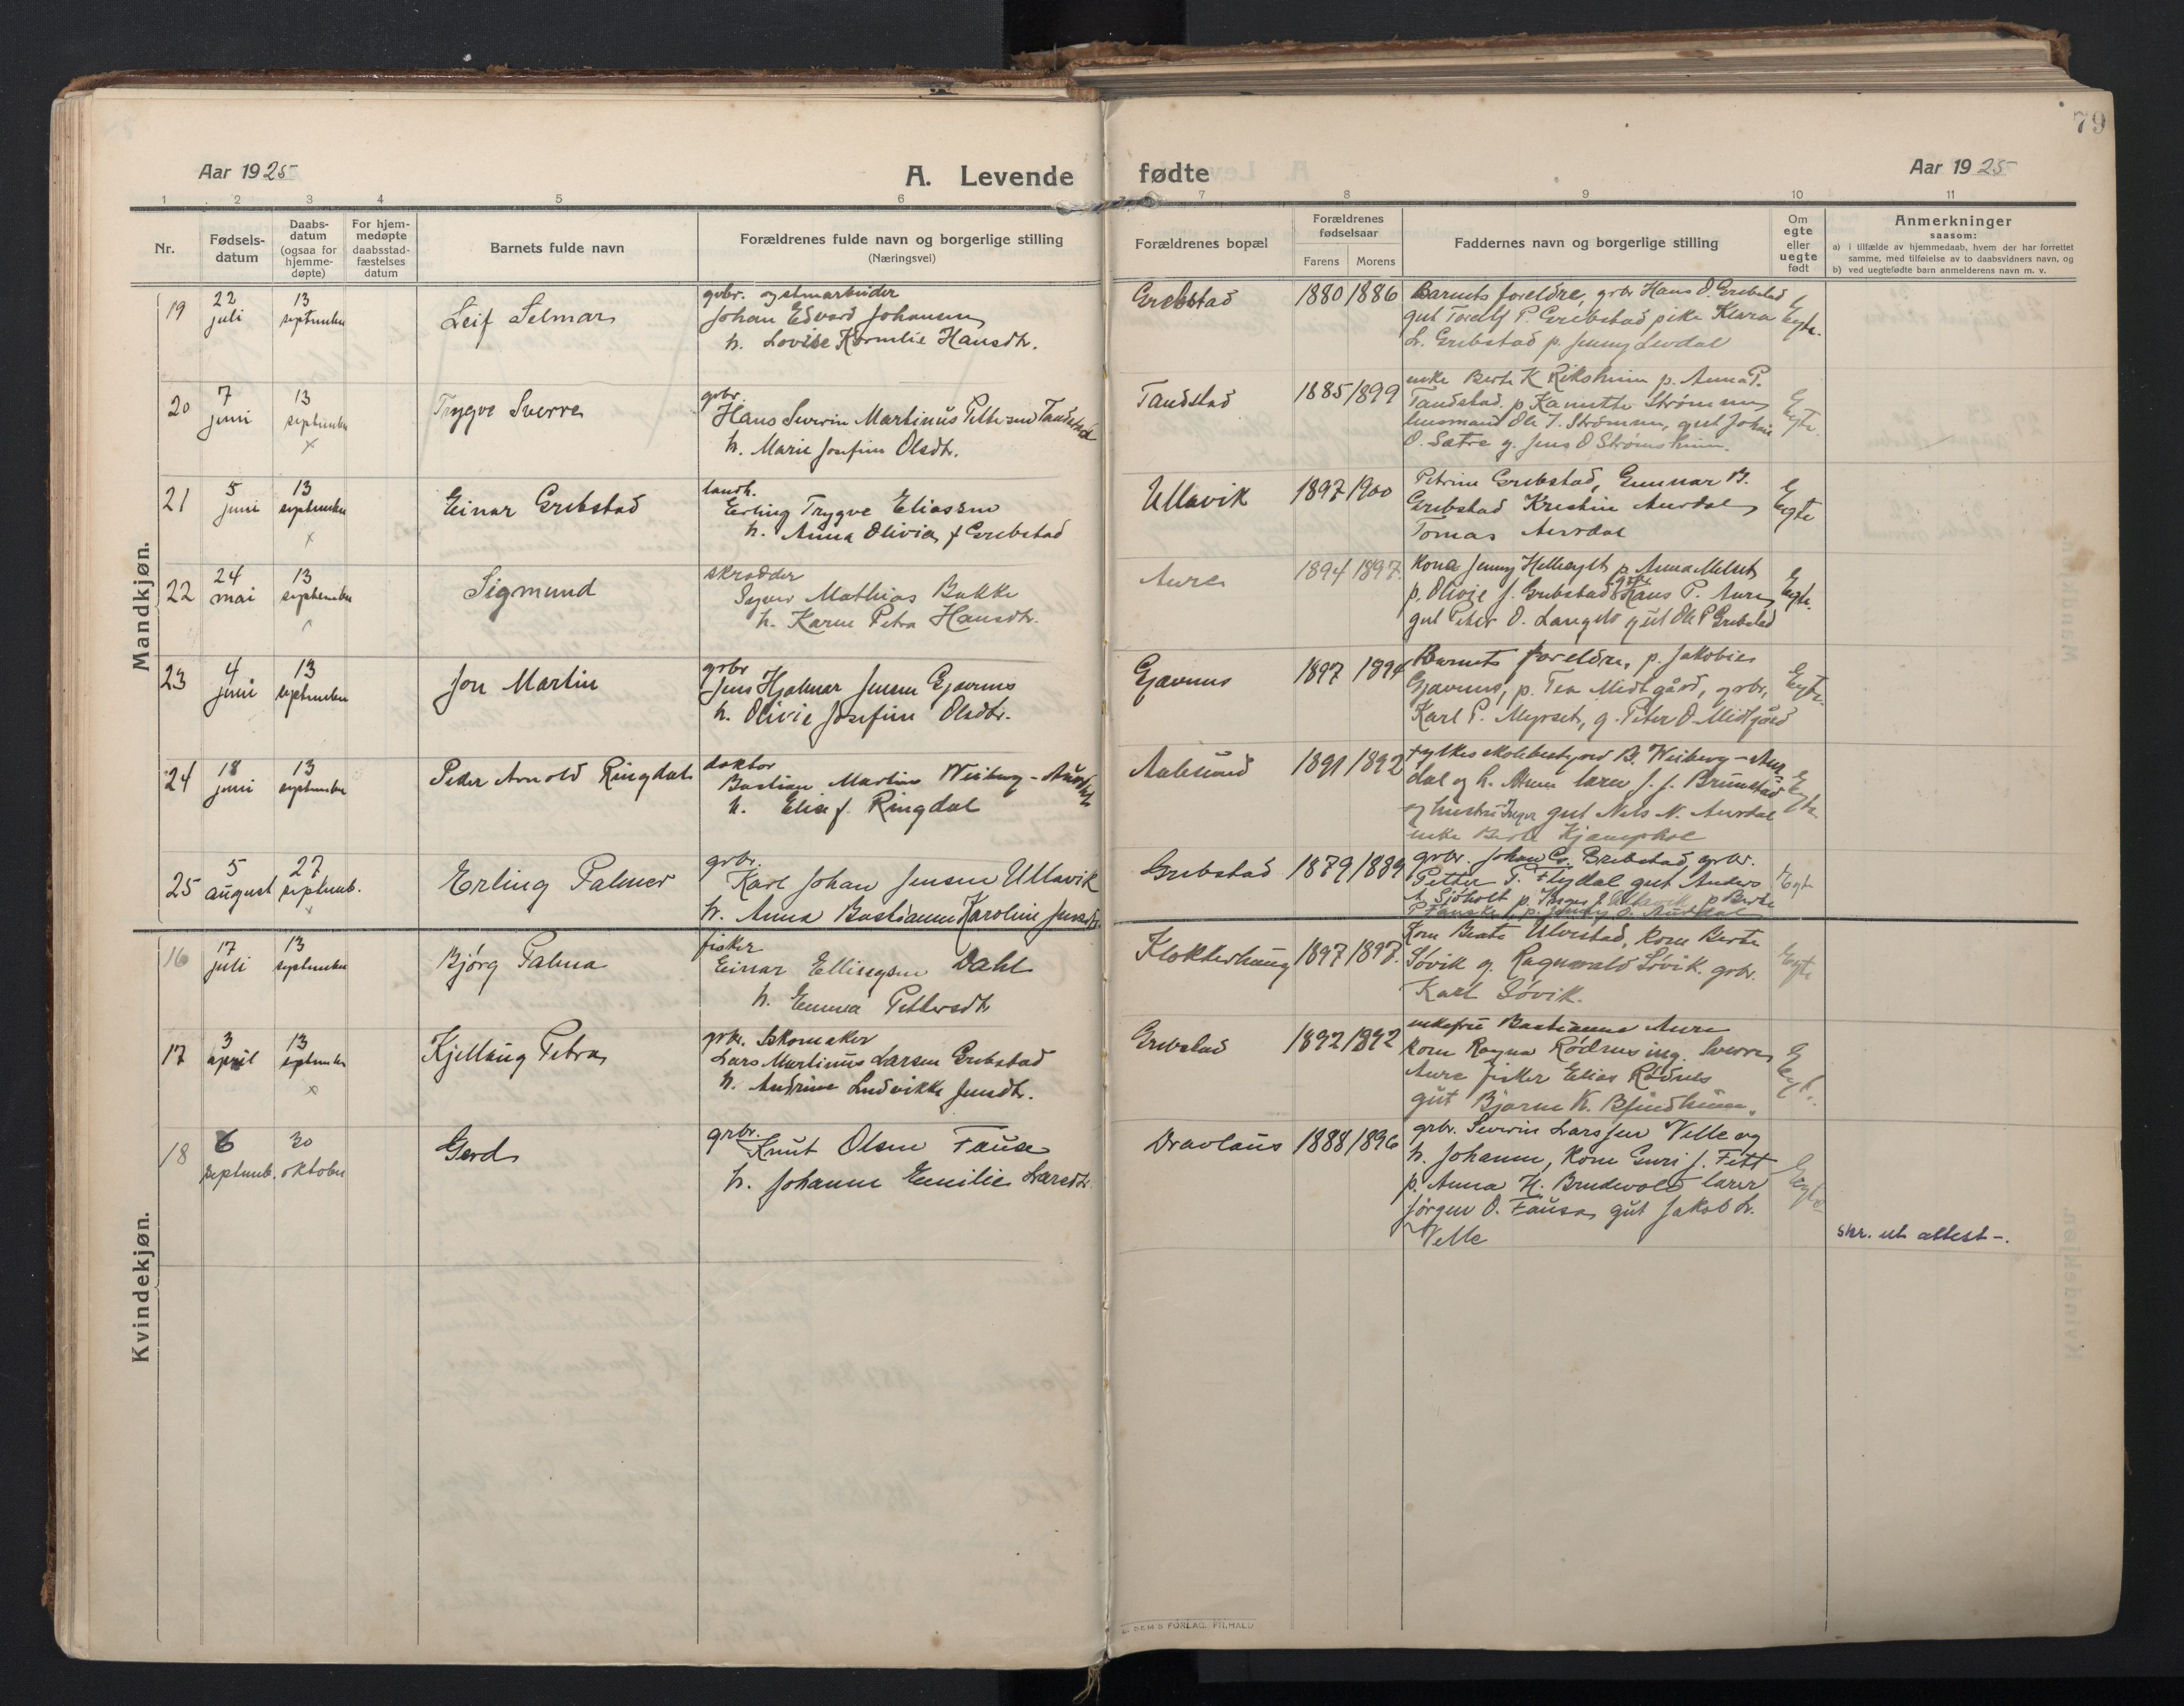 79
Aar 1925
A. Levende fødte
Aar 1925
1 2 3 4 5 6 7 8 9 10 11
Nr.
Fødsels-
datum
Daabs-
datum
(ogsaa for
hjemme-
døpte)
For hjem-
medøpte
daabsstad-
fæstelses
datum
Barnets fulde navn
Forældrenes fulde navn og borgerlige stilling
(Næringsvei)
Forældrenes bopæl
Forældrenes
fødselsaar
Farens Morens
Faddernes navn og borgerlige stilling
Om
egte
eller
uegte
født
Anmerkninger
saasom:
a) i tilfælde av hjemmedaab, hvem der har forrettet
samme, med tilføielse av to daabsvidners navn, og
b) ved uegtefødte barn anmelderens navn m. v.
Mandkjøn.
19
22 juli
13 september
Leif Selmar
grbr.
Johan Edvard Johansen
h. Lovise Kornelie Hansdtr.
Grebstad
1880 1886
Barnets foreldre, grbr Hans O. Grebstad
gut Toralf P. Grebstad pike Klara
L. Grebstad p. Jenny Levdal
Egte.
20
7 juni
13 september
x
Trygve Sverre
grbr.
Hans Severin Martinus Pettersen Tandstad
h. Marie Josefine Olsdtr.
Tandstad
1885 1899
enke Berte K Riksheim p. Anna P.
Tandstad. p. Kanutte Strømmen
husmand Ole J. Strømmen, gut Johan
O. Sætre g. Jens O Strømsheim.
Egte.
21
5 juni
13 september
x
Einar Grebstad
landh.
Erling Trygve Eliassen
h. Anna Olivia f Grebstad
Ullavik
1897 1900
Petrine Grebstad, Gunnar B.
Grebstad Kristine Aurdal
Tomas Aurdal
Egte
22
24 mai
13 september
Sigmund
skrædder
Mathias Bakke
h. Karen Petra Hansdtr.
Aure
1894 1897.
Kona Jenny Hellegylt p. Anna Melset
p. Olivie J. Grebstad grbr Hans P. Aure
gut Peter O. Langelo gut Ole P Grebstad
Egte.
23
4 juni
13 september
Jon Martin
grbr
Jens Hjalmar Jensen Gjævenes
h. Olivie Josefine Olsdtr.
Gjævenes
1897 1894
Barnets foreldre, p. Jakobie
Gjævenes, p. Tea Midtgård, grbr.
Karl P. Myrset, g. Peter O. Midtgård
Egte.
24
18 juni
13 september
Peder Arnold Ringdal
doktor
Bastian Martin Weiberg-Aurdal
h. Elise f. Ringdal
Aalesund
1891 1892
fylkesskolebestyrer B. Weiberg-Aur-
dal og h. Anna lærer J. J. Brunstad
og hustru Inger gut Nels N. Aurdal
enke Berte Kjæmphol
Egte
25
5 august
27 septemb.
x
Erling Palmer
grbr.
Karl Johan Jensen Ullavik
h. Anna Bastianne Karoline Jensdtr.
Grebstad
1879 1889
grbr. Johan Grebstad, grbr.
Petter T. Flydal gut Anders
A Sjøholt p. Inger J. Ullavik p Berte
p. Jenny O. Aurdal
Egte
Kvindekjøn.
16
17 juli
13 september
Bjørg Palma
fisker
Einar Ellingsen Dahl
h. Emma Pettersdtr
Klokkerhaug
1897 1897.
Kone Beate Ulvestad, Kone Berte
Søvik g. Ragnvald Søvik. grbr.
Karl Søvik.
Egte
17
3 april
13 september
x
Kjellaug Petra
grbr. skomaker
Lars Martinus Larsen Grebstad
h. Andrine Ludvikke Jensdtr.
Grebstad
1892 1892
enkefru Bastianne Aure
Kone Ragna Rødenes ing. Sverre
Aure fisker Elias Rødnes
gut Bjarne K. Blindheim.
Egte.
18
6 septemb.
30 oktober
Gerd
grbr.
Knut Olsen Fause
h. Johanne Emilie Larsdtr.
Dravlaus
1888 1896
grbr. Severin Larssen Velle og
h. Johanne, Kone Guri J. Fett
p. Anna H. Brudevold lærer
Jørgen O. Fausa gut Jakob L.
Velle
Egte
skr. ut attest -.
SEM'S FORLAG, F.HALD